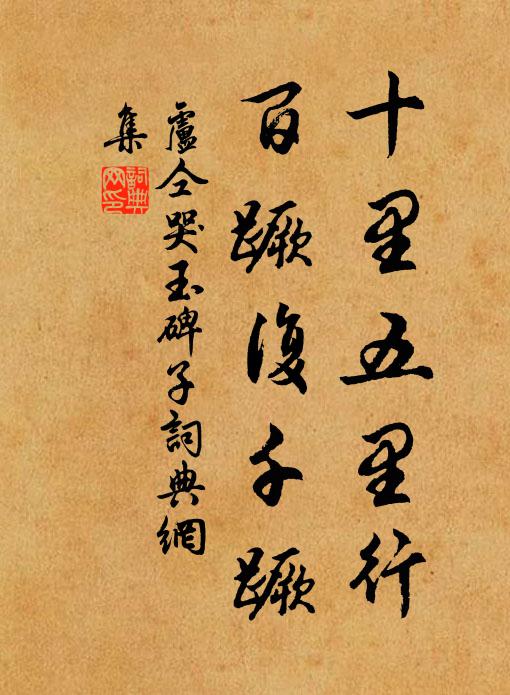 十里五里行
百蹶復千蹶
盧仝哭玉碑子詞典網
集
詞典網印